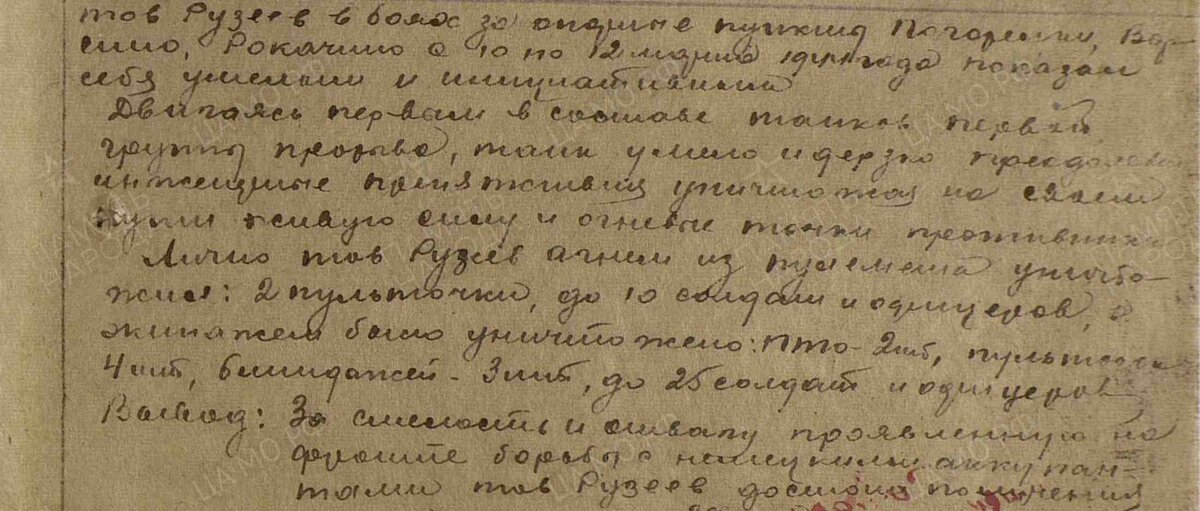 тов Рузеев в боях за опорные пункты Погорелки, Вор-
сино, Рокачино с 10 по 12 марта 1944 года показал
себя умелым и инициативным
Двигаясь первым в составе танков первой
группы прорыва, танк умело и дерзко преодолевал
инженерные препятствия уничтожая на своем
пути живую силу и огневые точки противника
Лично тов Рузеев огнем из пулемета уничто-
жил: 2 пульточки, до 10 солдат и офицеров, а
экипажем было уничтожено: ПТО - 2 шт, пульточек
4 шт, блиндажей - 3 шт, до 25 солдат и офицеров
Вывод: За смелость и отвагу проявленную на
фронте борьбы с немецкими оккупан-
тами тов Рузеев достоин получения